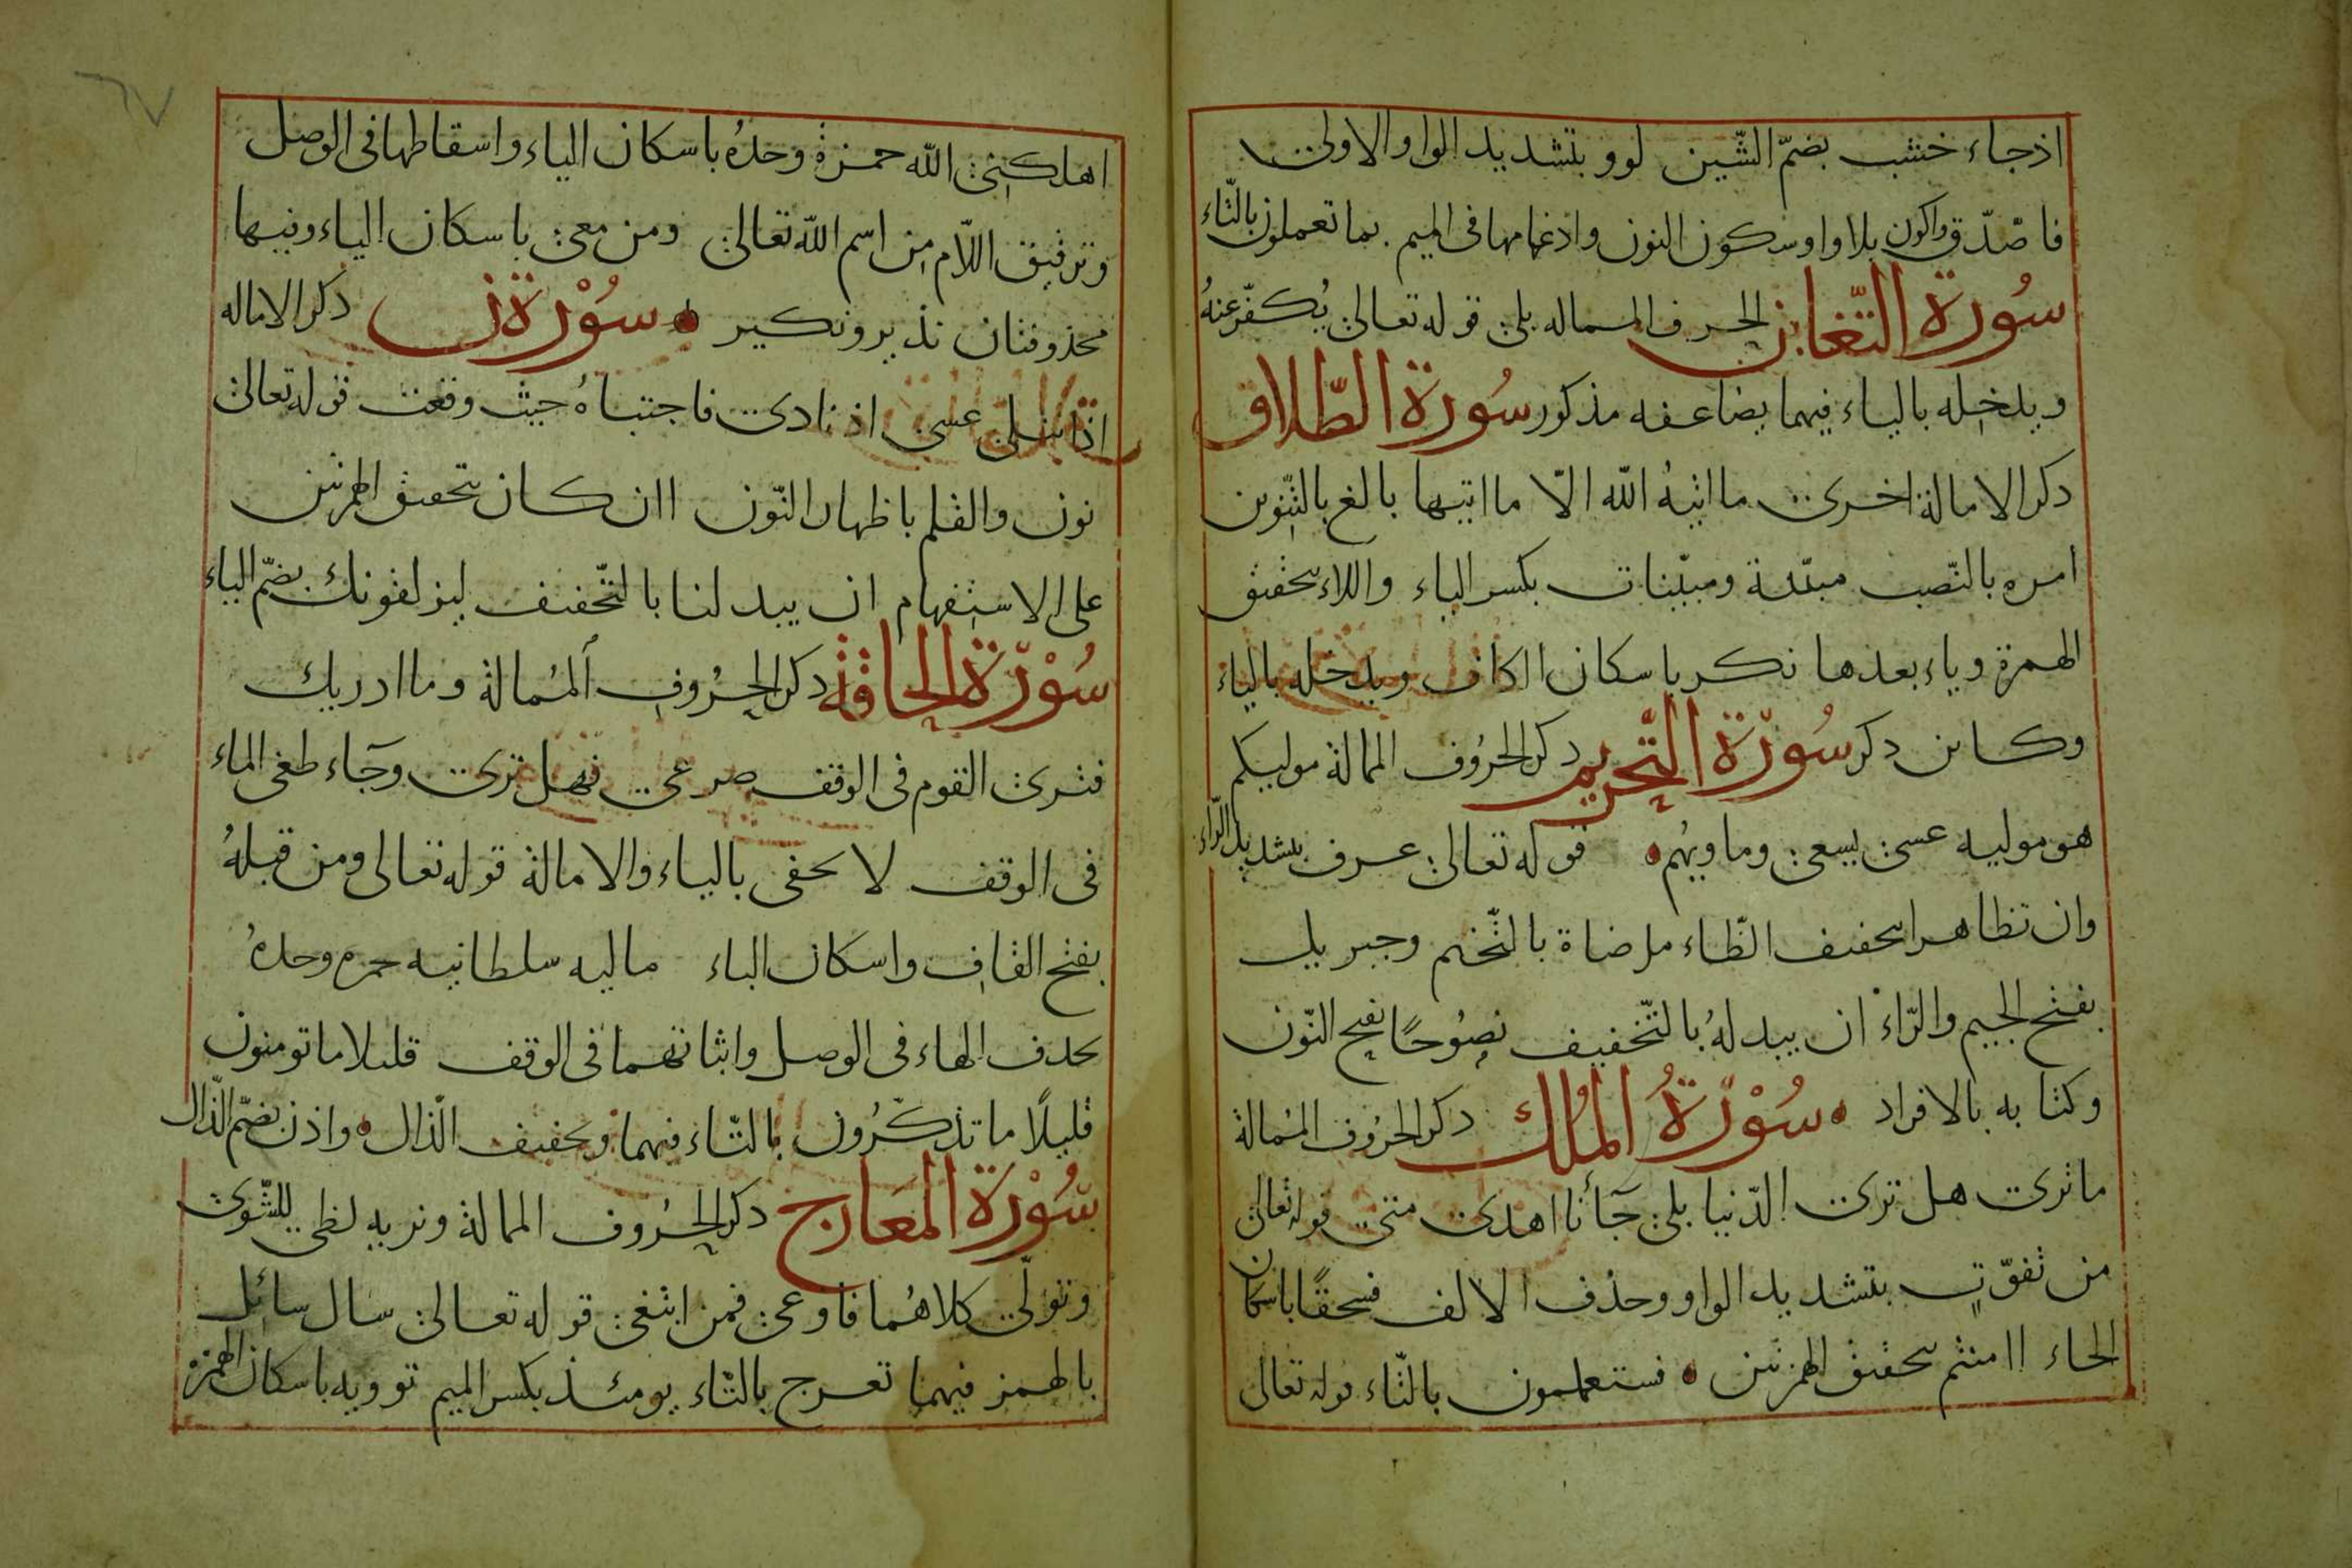 اذ جاء خشب بضمّ الشّين لوو بتشديد الواو الاولى
فاصّدّق واكون بلا واو وسكون النون واذغامها فى الميم بما تعملون بالتّاء
سُورة التّغابن الحرف الممالة بلى قوله تعالى يُكفّر عنهُ
ويدخله بالياء فيهما يضاعفه مذكور سُورة الطّلاق
دكر الامالة اخرى ما اتيهُ الله الّا ما اتيها بالغ بالتّنوين
امره بالنّصب مبيّنة ومبيّنات بكسر الياء واللاء بتحقيق
الهمزة وياء بعدها نكر باسكان الكاف ويدخله بالياء
وكاين دكر سُورّة التّحريم دكر الحرُوف الممالة موليكم
هو موليه عسى يسعى وماويهُم قوله تعالى عرف بتشديد الرّاء
وان تظاهرا بتحفيف الظّاء مرضاة بالتّفخيم وجبريل
بفتح الجيم والرّاء ان يبدلهُ بالتّخفيف نصُوحًا بفتح النّون
وكتابه بالافراد سُوْرّةُ المُلك دكر الحرُوف المُمالة
ما ترى هل ترى الدّنيا بلى جَآءنا اهدى متى قوله تعالى
من تفوّتٍ بتشديد الواو وحذف الالف فسحقًا باسكان
الحاء اامنتم بتحقيق الهمزتين فستعلمون بالتّاء قوله تعالى
٦٧
اهلكنى الله حمزة وحدهُ باسكان الياء واسقاطها فى الوصل
وترقيق اللّام من اسم الله تعالى ومن معى باسكان الياء وفيها
محذوفتان نذير ونكير سُوْرة ن دكر الاماله
اذا تتلى عسى اذ نادى فاجتباهُ حيث وقعت قوله تعالى
نون والقلم باظهار النّون اان كان بتحقيق الهمزتين
على الاستفهام ان يبدلنا بالتّخفيف ليزلقونك بضمّ الياء
سُوْرّة الحاقّة دكر الحرُوف المُمالة وما ادريك
فترى القوم فى الوقف صرعى فهل ترى وجَاء طغى الماء
فى الوقف لا يحفى بالياء والامالة قوله تعالى ومن قبلهُ
بفتح القاف واسكان الباء ماليه سلطانيه حمزه وحدهُ
بحدف الهاء فى الوصل واثباتهما فى الوقف قليلا ما تومنون
قليلًا ما تذكّرُون بالتّاء فيهما وتخفيف الّذال واذن بضمّ الذّال
سُوْرة المعَارج دكر الحرُوف الممالة ونريه لظى للشّوى
وتولّى كلاهُما فاوعى فمن ابتغى قوله تعالى سال سائل
بالهمز فيهما تعرج بالتّاء يومئذ بكسر الميم توويه باسكان الهمزة